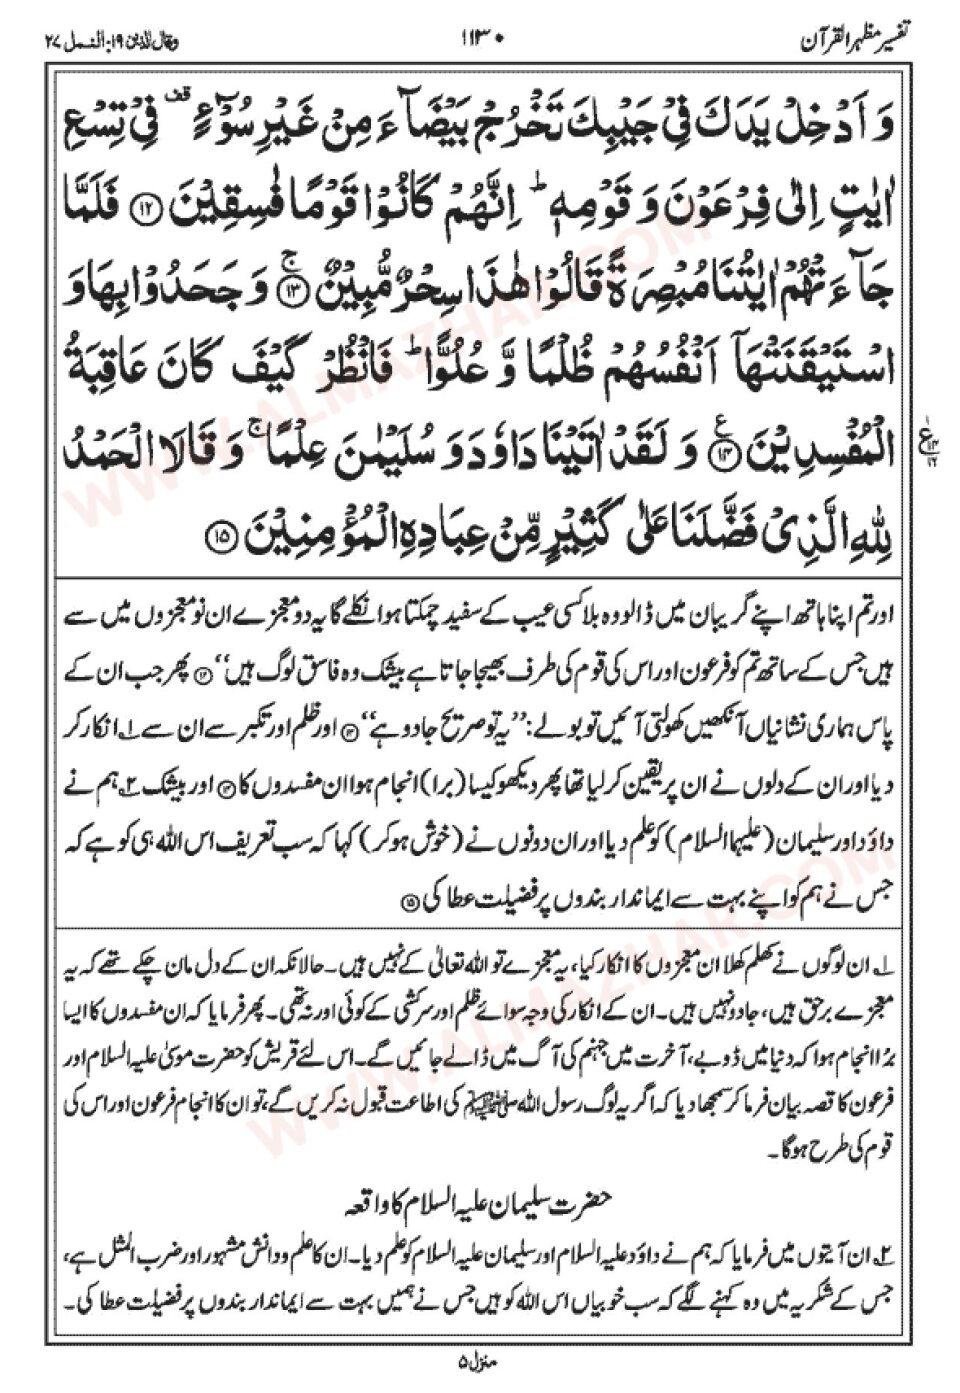 تفسیر مظہر القرآن
۱۱۳۰
وقال الذین ۱۹: النمل ۲۷
وَ اَدْخِلْ یَدَكَ فِیْ جَیْبِكَ تَخْرُجْ بَیْضَآءَ مِنْ غَیْرِ سُوْٓءٍ ۫ قف فِیْ تِسْعِ
اٰیٰتٍ اِلٰی فِرْعَوْنَ وَ قَوْمِهٖ ؕ اِنَّهُمْ كَانُوْا قَوْمًا فٰسِقِیْنَ ۱۲ فَلَمَّا
جَآءَتْهُمْ اٰیٰتُنَا مُبْصِرَةً قَالُوْا هٰذَا سِحْرٌ مُّبِیْنٌ ۱۳ ۚ وَ جَحَدُوْا بِهَا وَ
اسْتَیْقَنَتْهَاۤ اَنْفُسُهُمْ ظُلْمًا وَّ عُلُوًّا ؕ فَانْظُرْ كَیْفَ كَانَ عَاقِبَةُ
الْمُفْسِدِیْنَ ۱۴ ع وَ لَقَدْ اٰتَیْنَا دَاوٗدَ وَ سُلَیْمٰنَ عِلْمًا ۚ وَ قَالَا الْحَمْدُ
لِلّٰهِ الَّذِیْ فَضَّلَنَا عَلٰی كَثِیْرٍ مِّنْ عِبَادِهِ الْمُؤْمِنِیْنَ ۱۵
اور تم اپنا ہاتھ اپنے گریبان میں ڈالو وہ بلا کسی عیب کے سفید چمکتا ہوا نکلے گا یہ دو معجزے ان نو معجزوں میں سے
ہیں جس کے ساتھ تم کو فرعون اور اس کی قوم کی طرف بھیجا جاتا ہے بیشک وہ فاسق لوگ ہیں‘‘ ۱۲ پھر جب ان کے
پاس ہماری نشانیاں آنکھیں کھولتی آئیں تو بولے: ’’یہ تو صریح جادو ہے‘‘ ۱۳ اور ظلم اور تکبر سے ان سے ۱؎ انکار کر
دیا اور ان کے دلوں نے ان پر یقین کر لیا تھا پھر دیکھو کیسا (برا) انجام ہوا ان مفسدوں کا ۱۴ اور بیشک ۲؎ ہم نے
داؤد اور سلیمان (علیہما السلام) کو علم دیا اور ان دونوں نے (خوش ہو کر) کہا کہ سب تعریف اس اللہ ہی کو ہے کہ
جس نے ہم کو اپنے بہت سے ایماندار بندوں پر فضیلت عطا کی ۱۵
۱؎ ان لوگوں نے کھلم کھلا ان معجزوں کا انکار کیا، یہ معجزے تو اللہ تعالیٰ کے نہیں ہیں۔ حالانکہ ان کے دل مان چکے تھے کہ یہ
معجزے برحق ہیں، جادو نہیں ہیں۔ ان کے انکار کی وجہ سوائے ظلم اور سرکشی کے کوئی اور نہ تھی۔ پھر فرمایا کہ ان مفسدوں کا ایسا
برُا انجام ہوا کہ دنیا میں ڈوبے، آخرت میں جہنم کی آگ میں ڈالے جائیں گے۔ اس لئے قریش کو حضرت موسیٰ علیہ السلام اور
فرعون کا قصہ بیان فرما کر سمجھا دیا کہ اگر یہ لوگ رسول اللہ ﷺ کی اطاعت قبول نہ کریں گے، تو ان کا انجام فرعون اور اس کی
قوم کی طرح ہوگا۔
حضرت سلیمان علیہ السلام کا واقعہ
۲؎ ان آیتوں میں فرمایا کہ ہم نے داؤد علیہ السلام اور سلیمان علیہ السلام کو علم دیا۔ ان کا علم و دانش مشہور اور ضرب المثل ہے،
جس کے شکریہ میں وہ کہنے لگے کہ سب خوبیاں اس اللہ کو ہیں جس نے ہمیں بہت سے ایماندار بندوں پر فضیلت عطا کی۔
منزل ۵
WWW.ALMAZHAR.COM
WWW.ALMAZHAR.COM